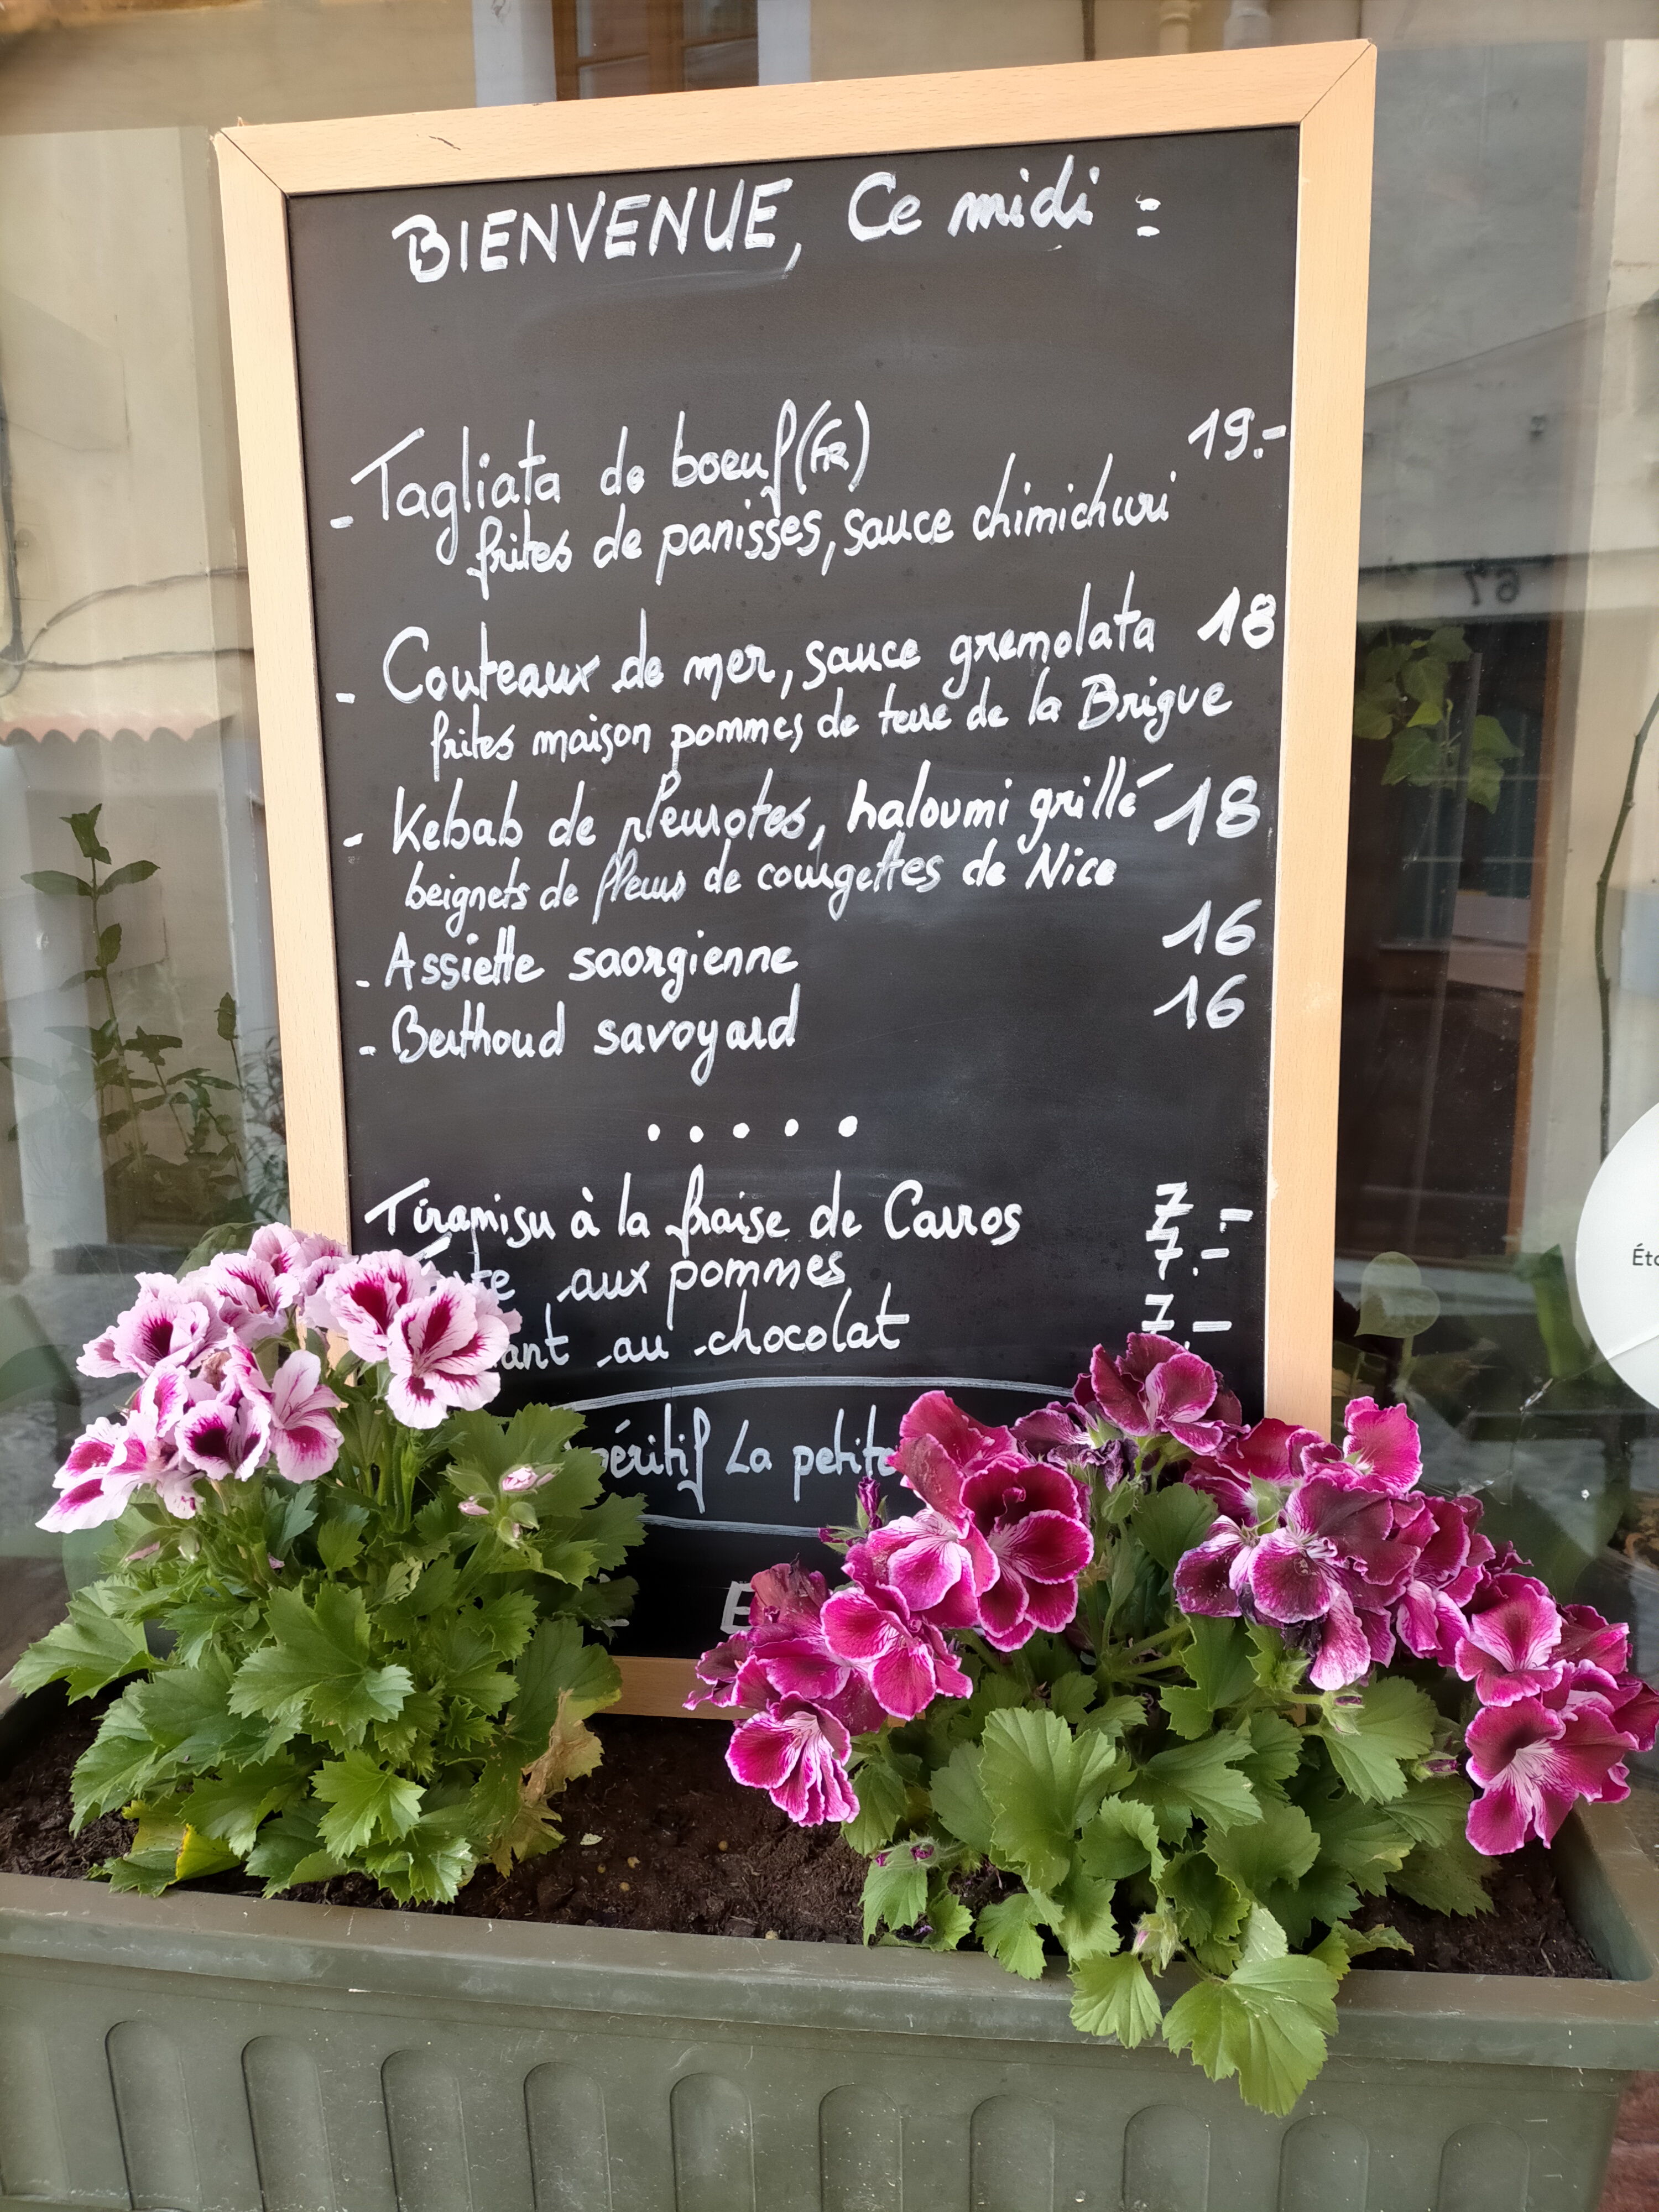 BIENVENUE, Ce midi :
- Tagliata de boeuf (FR) 19.-
frites de panisses, sauce chimichuri
- Couteaux de mer, sauce gremolata 18
frites maison pommes de terre de la Brigue
- Kebab de pleurotes, haloumi grillé 18
beignets de fleurs de courgettes de Nice
- Assiette saorgienne 16
- Berthoud savoyard 16
.....
Tiramisu à la fraise de Carros 7.-
aux pommes 7.-
au chocolat 7.-
La petite
67